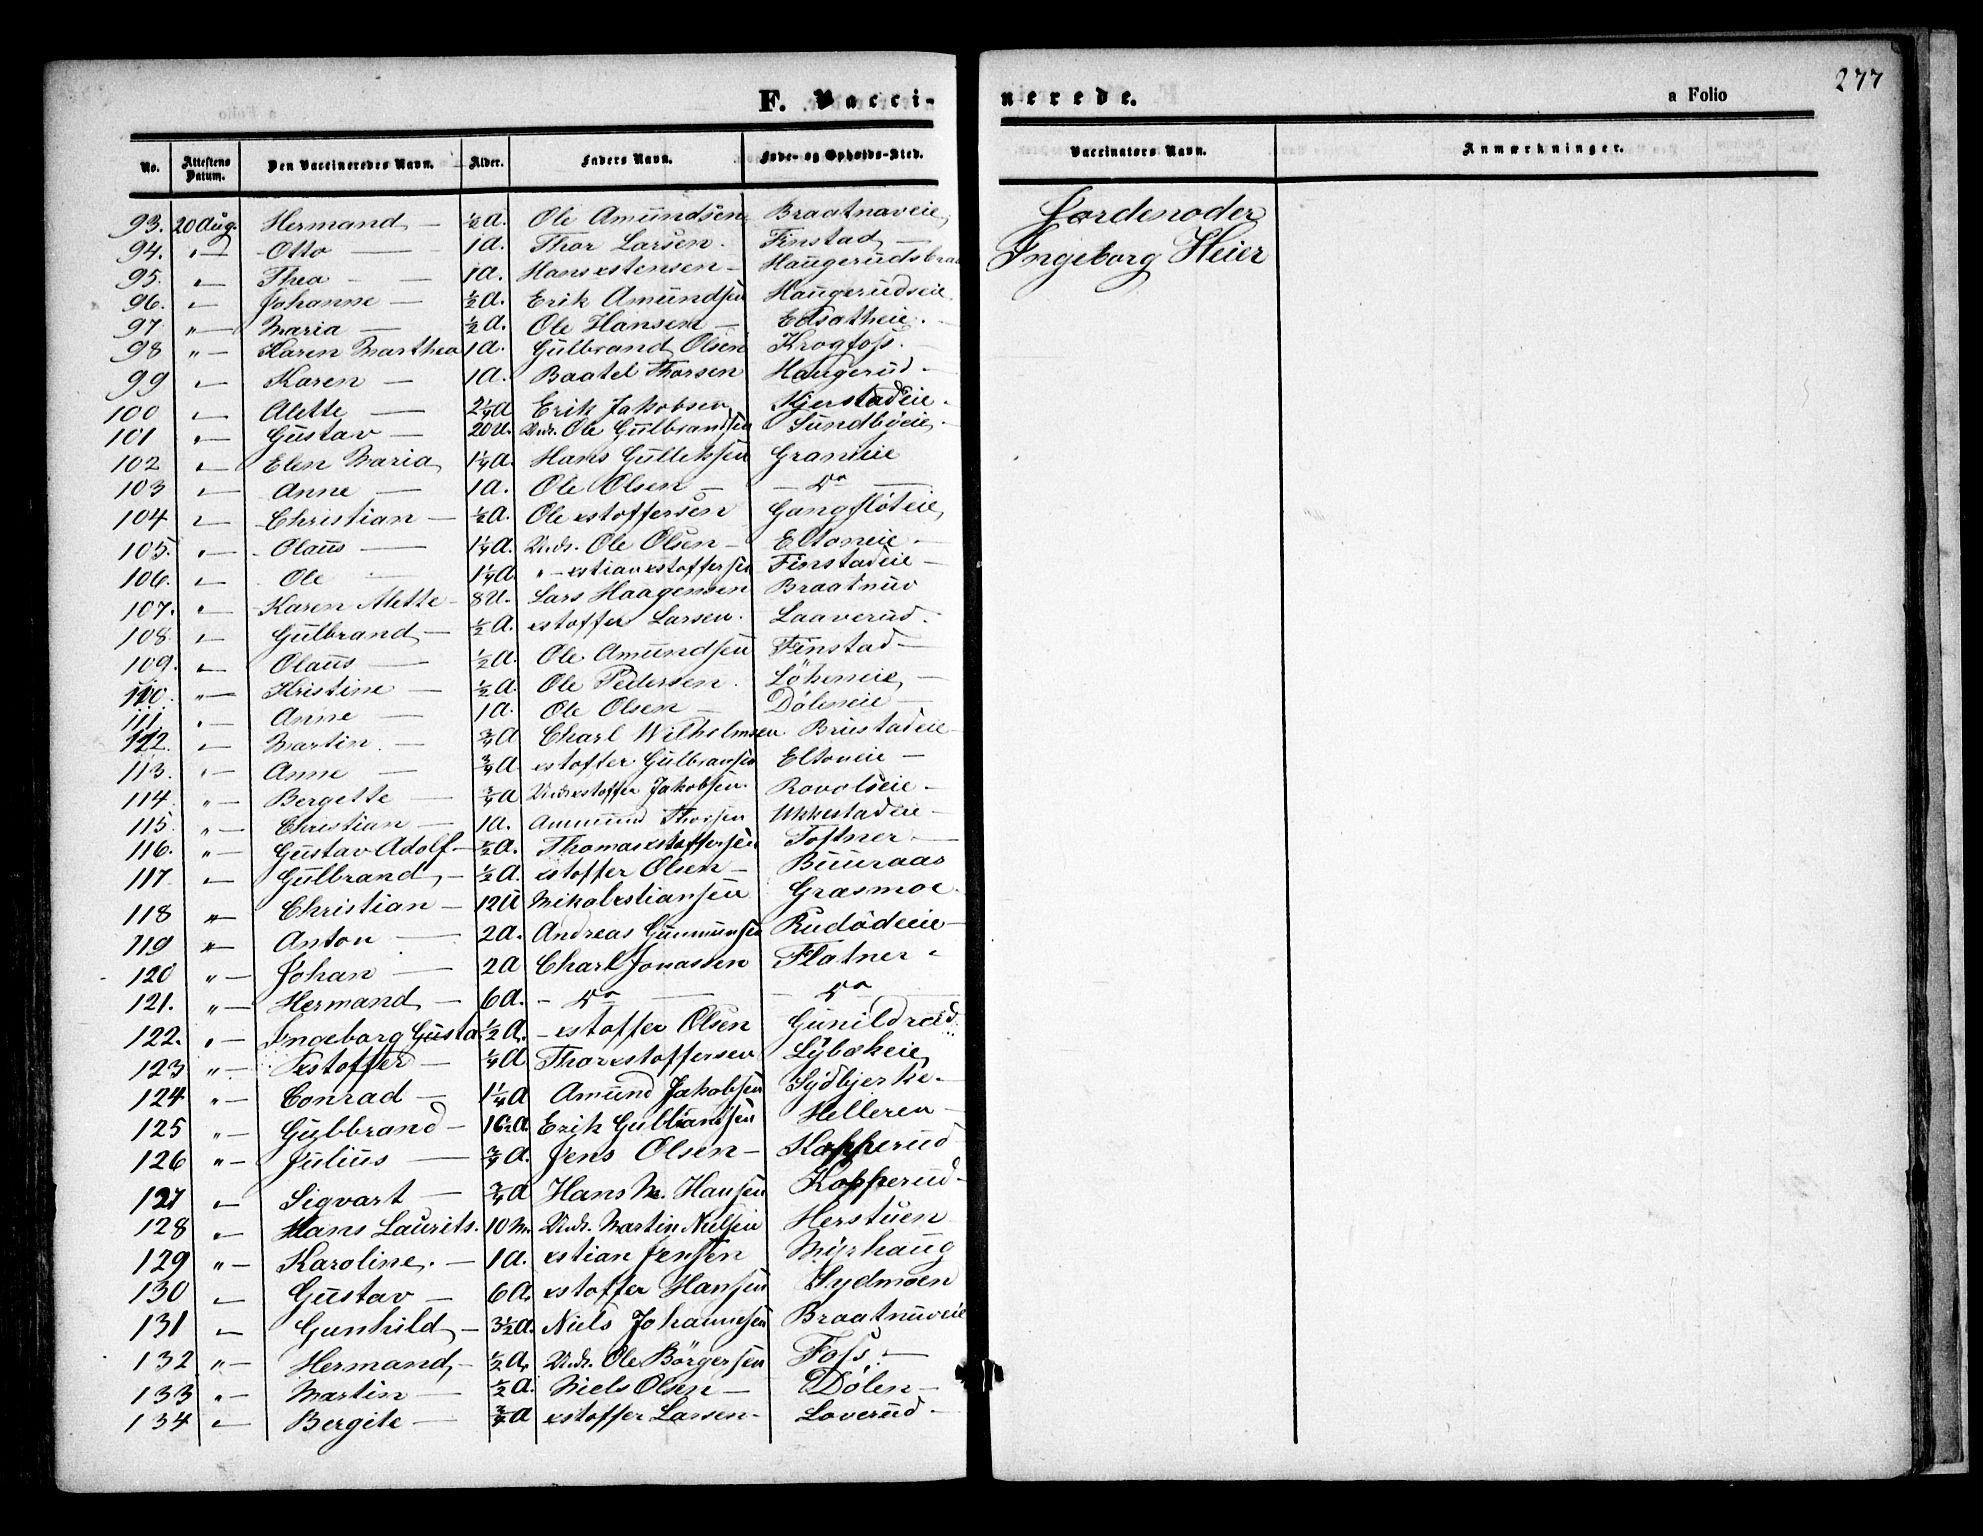 F. Vaccinerede.
a Folio 277
No. Attestens Datum. Den Vaccineredes Navn. Alder. Faders Navn. Føde- og Opholds-Sted. Vaccinators Navn. Anmærkninger.
93. 20 Aug. Hermand — ½ A. Ole Amundsen Braatnaveie Jordenoder
94. " — Otto — 1 A. Thor Larsen. Finstad — Ingeborg Heier
95. " — Thea — 1 A. Hans xstensen — Haugerudsbraa
96. " — Johanne — ½ A. Erik Amundsen Haugerudseie
97 " — Maria — ½ A. Ole Hansen —
98 " — Karen Marthea 1 A. Gulbrand Olsen Krogfoss.
99 " — Karen — 1 A. Baatel Thorsen Haugerud —
100 " — Alette — 2¼ A Erik Jakobsen Kjerstadeie —
101 " — Gustav — 20 U. Undr. Ole Gulbrandsen Sundbyeie
102 " — Elen Maria 1¼ A. Hans Gulleksen Graneie
103 " — Anne — 1 A. Ole Olsen — — Do —
104 " — Christian — ½ A. Ole xstoffersen Gangfløteie
105. " — Olaus — 1¼ A. Undr. Ole Olsen — Eltoneie —
106. " — Ole — 1¼ A. " — xstian xstoffersen Finstadeie —
107. " — Karen Alette — 8 U. Lars Haagensen Braatnuv
108 " — Gulbrand — ½ A. xstoffer Larsen. Laaverud.
109. " — Olaus — ½ A. Ole Amundsen Finstad —
110. " — Kristine — ½ A. Ole Pedersen. Løkeneie —
111. " — Anne — 1 A. Ole Olsen — Døleneie —
112. " — Martin. — ¾ A Charl Wilhelmsen Brustadeie —
113. " — Anne — ¾ A xstoffer Gulbransen Eltoneie —
114 " — Bergette — ¾ A Undr xstoffer Jakobsen. Rovolseie —
115. " — Christian — 1 A. Ammund Thorsen Ukkestadeie —
116. " — Gustav Adolf — ½ A. Thomas xstoffersen Toftner —
117 " — Gulbrand — ½ A. xstoffer Olsen — Buuraas
118 " — Christian — 12 U Mikal xstiansen Grasmoe
119 " — Anton — 2 A. Andreas Gunmunsen Rudødeie —
120 " — Johan — 2 A Charl Jonassen Flatner "
121. " — Hermand — 6 A. — Do — — Do
122. " — Ingeborg Gusta. ½ A. — xstoffer Olsen Gunildrud
123 " — xstoffer — ¼ A Thor xstoffersen Lybekeie
124 " — Conrad — 1¼ A Amund Jakobsen Sydbjerke —
125 " — Gulbbrand — Erik Gulbbransen Helleren —
126 " — Julius — ¾ A. Jens Olsen — Kopperud
127 " — Sigvart — ¾ A Hans M. Hansen Kopperud —
128 " — Hans Laurits. 10 M. Undr. Martin Nielsen Herstuen
129 " — Karoline. — 1 A. xstian Jensen Myrhaug
130 " — Gustav — 6 A. xstoffer Hansen Sydmoen
131 " — Gunhild — 3½ A. Niels Johannesen Braatnuveie
132 " — Hermand — ½ A. Undr. Ole Børgersen Foss. —
133 " — Martin — ½ A. Niels Olsen — Dølen —
134 " — Bergite — ¾ A xstoffer Larsen — Loverud —